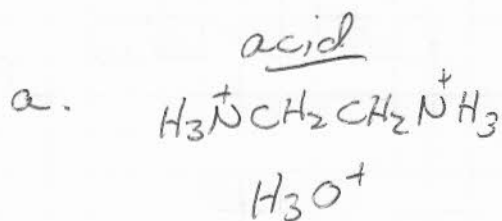 acid
a. H₃N⁺CH₂CH₂N⁺H₃
H₃O⁺